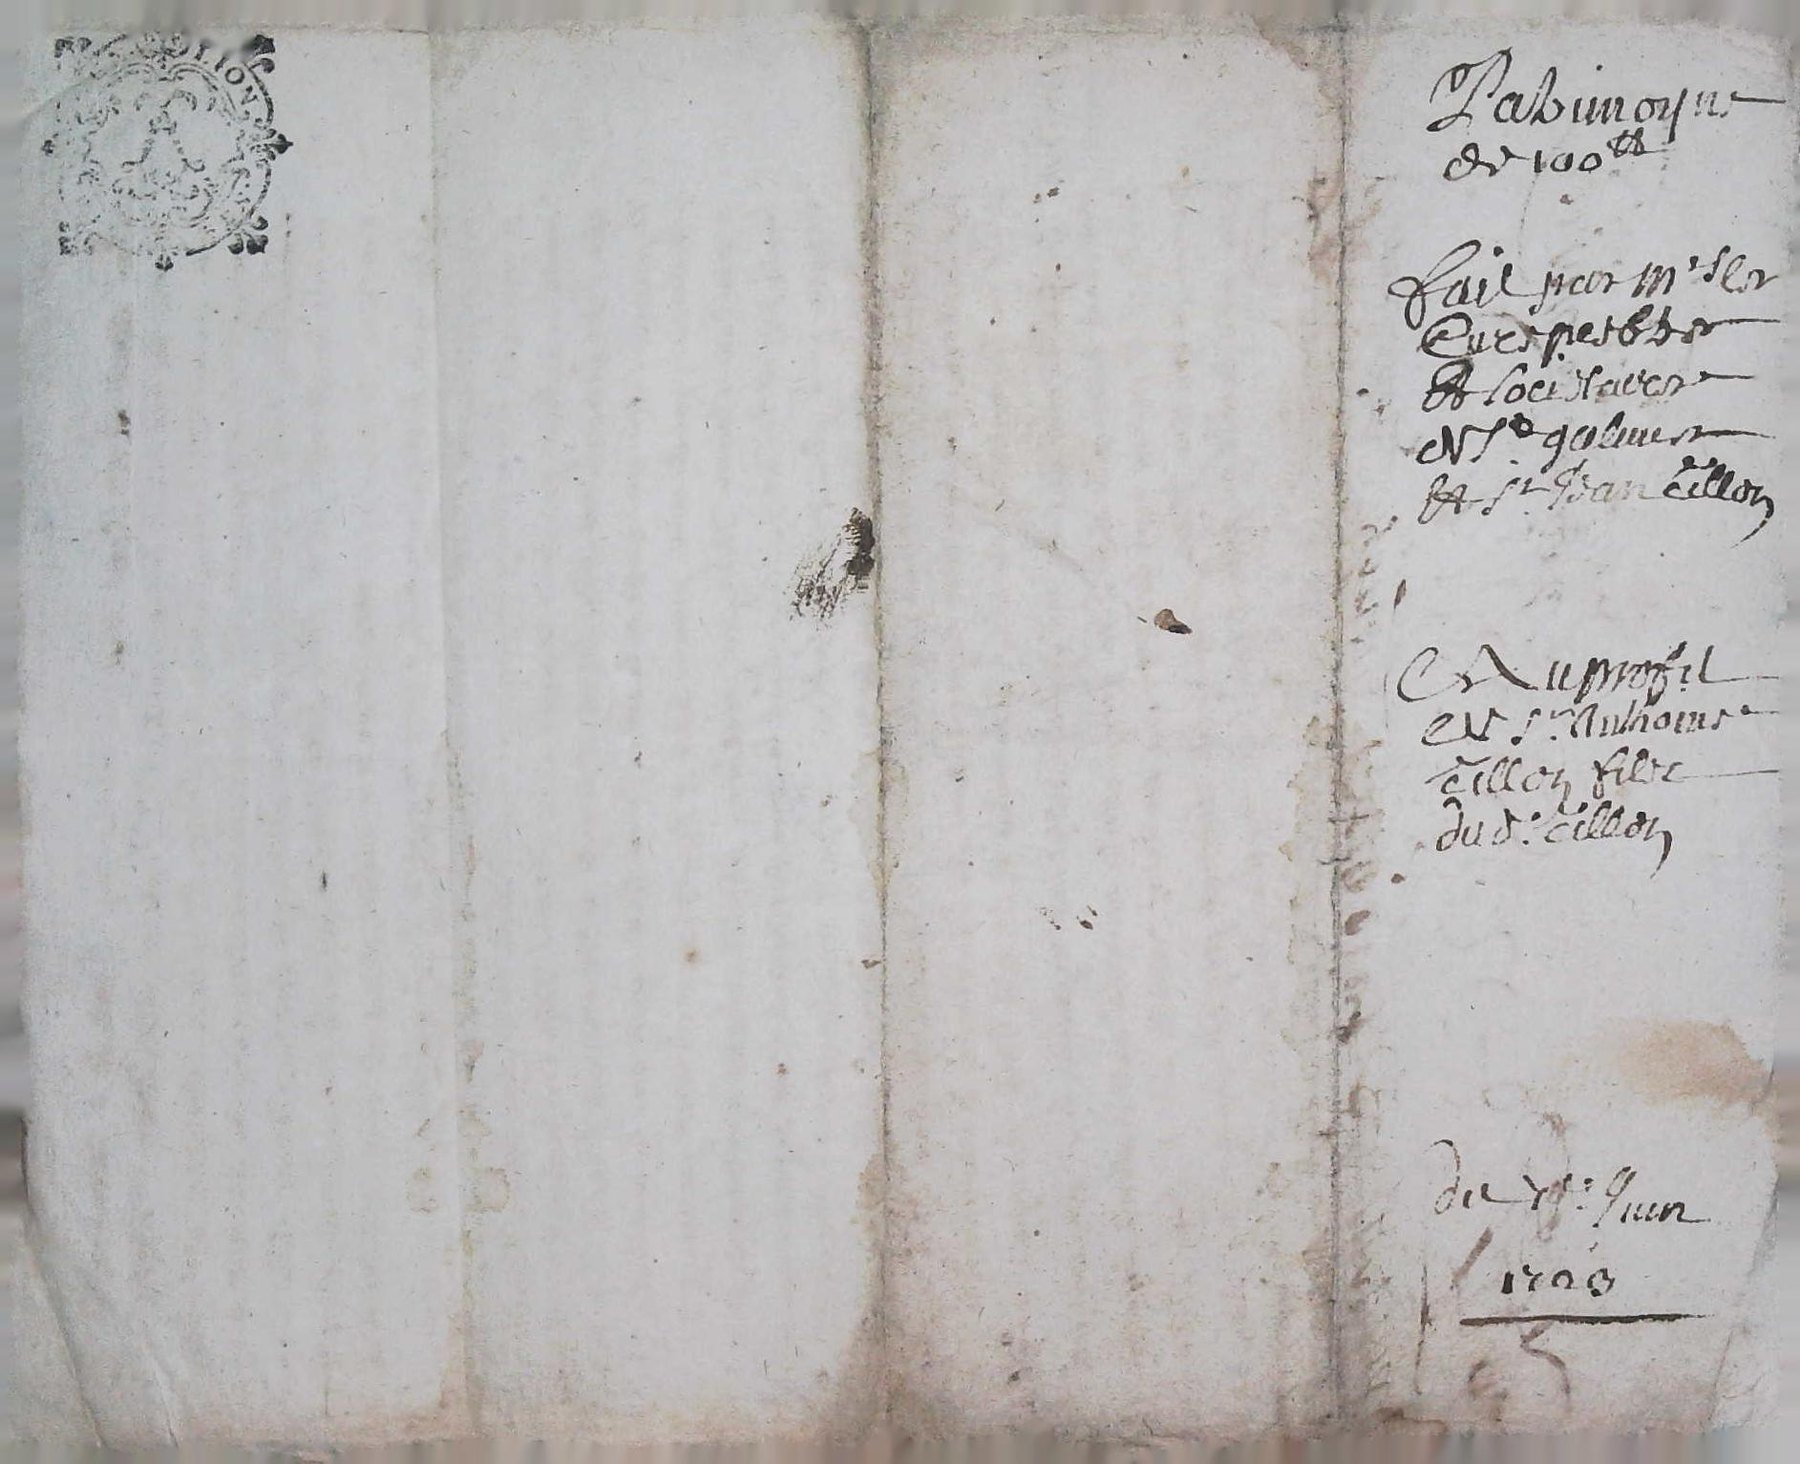 LION
Patrimoyne
de 100 tt
fait par mrs les
Cure prebtre
et socistaere
de St galmer
et Sr Jean Cillon
Au profit
de Sr Anthoine
Cillon filz
du d. Cillon
du Juin
1703